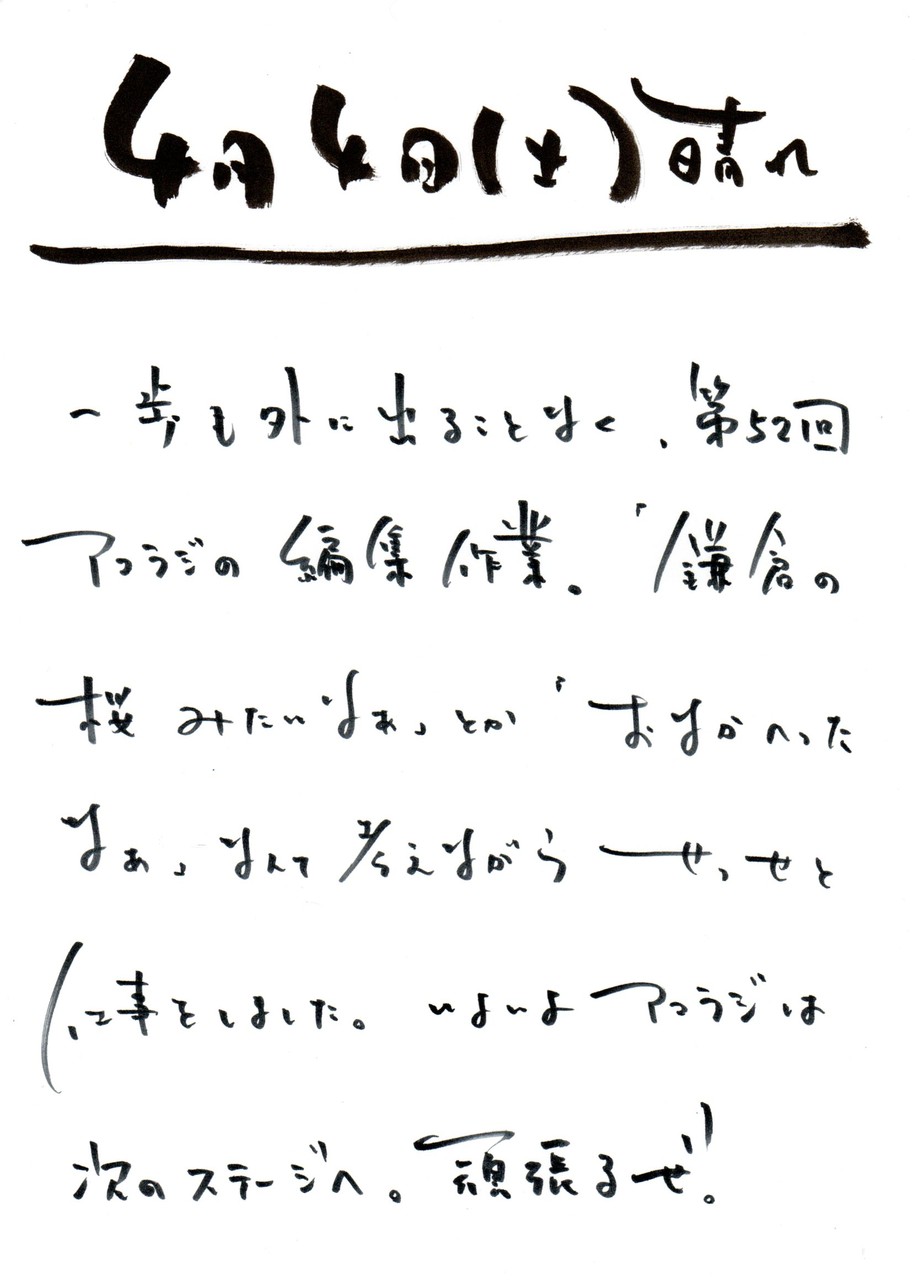 4月4日(土)晴れ
一歩も外に出ることなく、第52回
アコラジの編集作業。「鎌倉の
桜みたいなぁ」とか「おなかへった
なぁ」なんて考えながらせっせと
仕事をしました。いよいよアコラジは
次のステージへ。頑張るぜ。